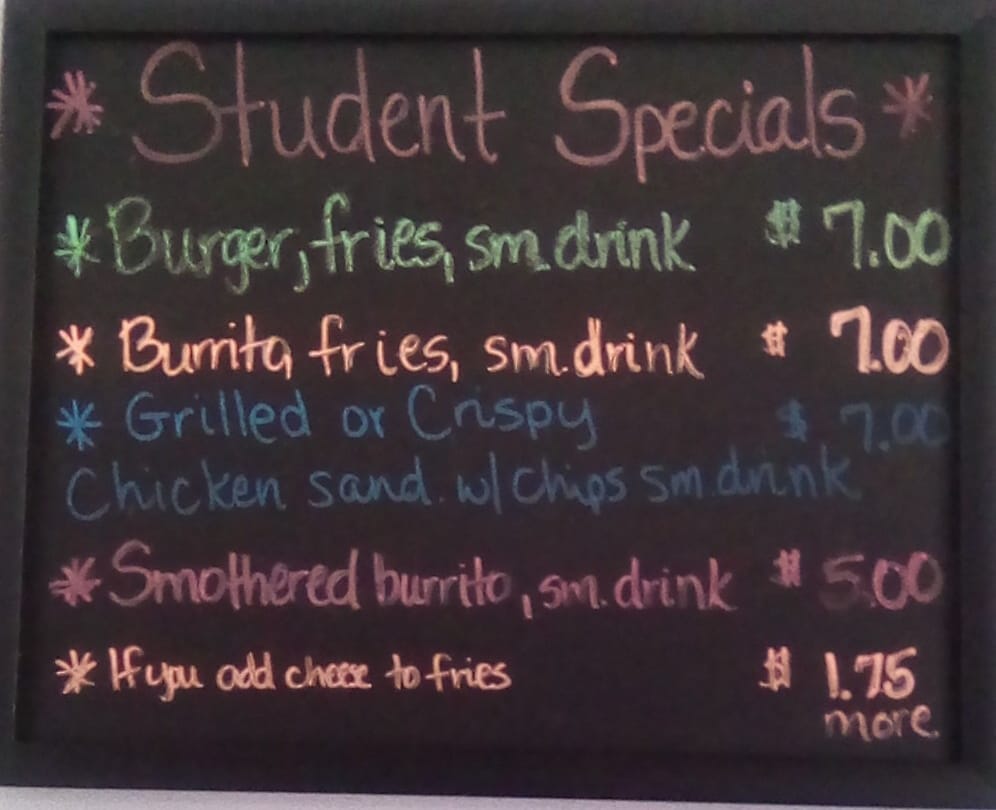 * Student Specials *
* Burger, fries, sm. drink $ 7.00
* Burrito, fries, sm. drink $ 7.00
* Grilled or Crispy $ 7.00
Chicken sand. w/ chips sm. drink
* Smothered burrito, sm. drink $ 5.00
* If you add cheese to fries $ 1.75
more